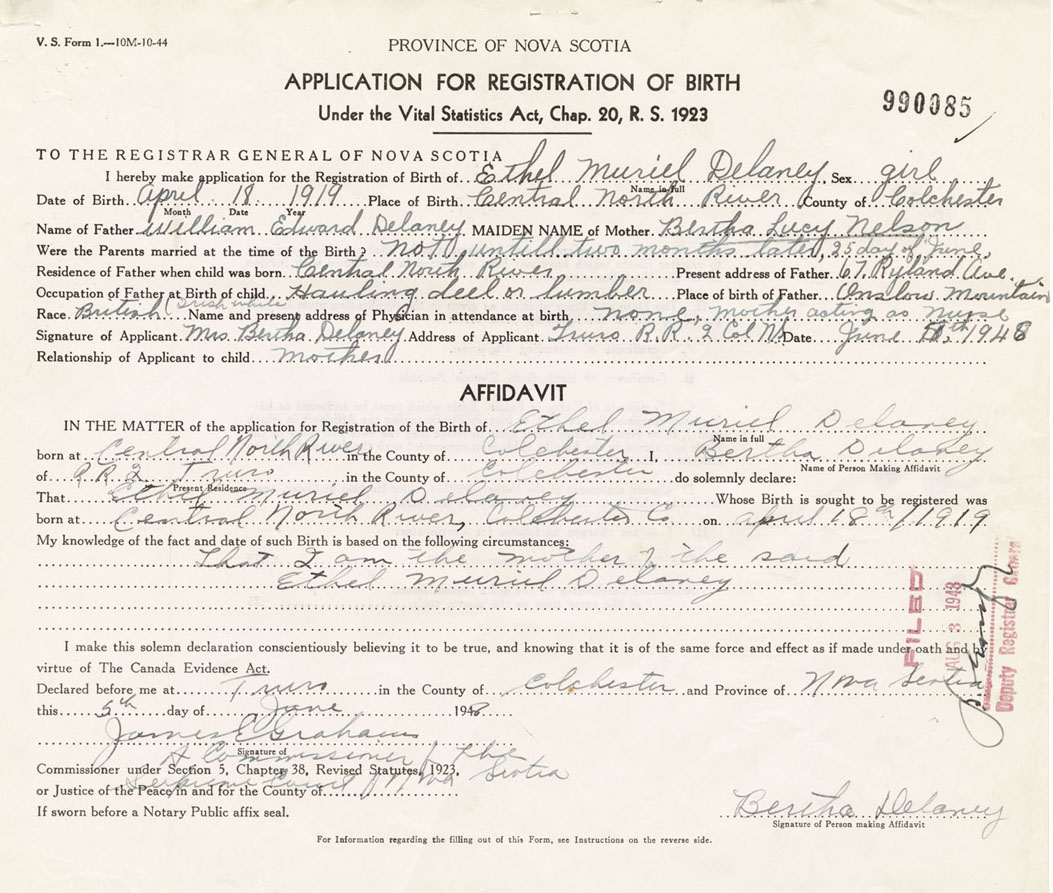 V. S. Form 1.—10M-10-44
PROVINCE OF NOVA SCOTIA
APPLICATION FOR REGISTRATION OF BIRTH
Under the Vital Statistics Act, Chap. 20, R. S. 1923
990085
TO THE REGISTRAR GENERAL OF NOVA SCOTIA
I hereby make application for the Registration of Birth of Ethel Muriel Delaney Sex girl
Name in full
Date of Birth April 18 1919 Place of Birth Central North River County of Colchester
Month Date Year
Name of Father William Edward Delaney MAIDEN NAME of Mother Bertha Lucy Nelson
Were the Parents married at the time of the Birth? Not untill two months later, 25 day of June,
Residence of Father when child was born Central North River Present address of Father 67 Ryland Ave.
Occupation of Father at Birth of child Hauling deel or lumber Place of birth of Father Onslow Mountain
Race British (Irish white) Name and present address of Physician in attendance at birth none, mother acting as nurse
Signature of Applicant Mrs. Bertha Delaney Address of Applicant Truro R.R. 2 Col NS Date June 1948
Relationship of Applicant to child mother
AFFIDAVIT
IN THE MATTER of the application for Registration of the Birth of Ethel Muriel Delaney
Name in full
born at Central North River in the County of Colchester I, Bertha Delaney
Name of Person Making Affidavit
of R R 2 Truro in the County of Colchester do solemnly declare:
Present Residence
That Ethel Muriel Delaney Whose Birth is sought to be registered was
born at Central North River, Colchester Co on April 18th, 1919
My knowledge of the fact and date of such Birth is based on the following circumstances:
That I am the mother of the said
Ethel Muriel Delaney
I make this solemn declaration conscientiously believing it to be true, and knowing that it is of the same force and effect as if made under oath and by
virtue of The Canada Evidence Act.
Declared before me at Truro in the County of Colchester and Province of Nova Scotia
this 5th day of June 1948
James E Graham
Signature of
A Commissioner of the
Commissioner under Section 5, Chapter 38, Revised Statutes, 1923,
Supreme Court of Nova Scotia
or Justice of the Peace in and for the County of
If sworn before a Notary Public affix seal.
Bertha Delaney
Signature of Person making Affidavit
For Information regarding the filling out of this Form, see Instructions on the reverse side.
FILED
AUG 3 1948
Deputy Registrar General